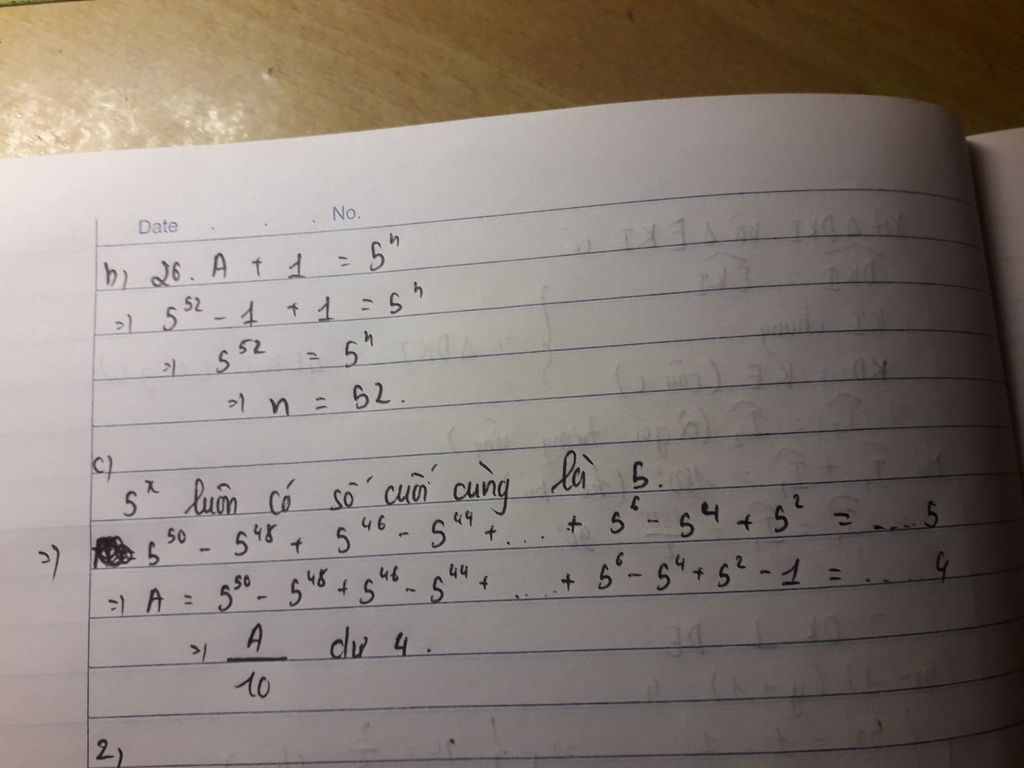 Date . . . No.
b) 26. A + 1 = 5^n
=) 5^52 - 1 + 1 = 5^n
=) 5^52 = 5^n
=) n = 52.
c)
5^x luôn có số cuối cùng là 5.
=) 5^50 - 5^48 + 5^46 - 5^44 + ... + 5^6 - 5^4 + 5^2 = .... 5
=) A = 5^50 - 5^48 + 5^46 - 5^44 + .... + 5^6 - 5^4 + 5^2 - 1 = ..... 4
=) A/10 dư 4.
2)